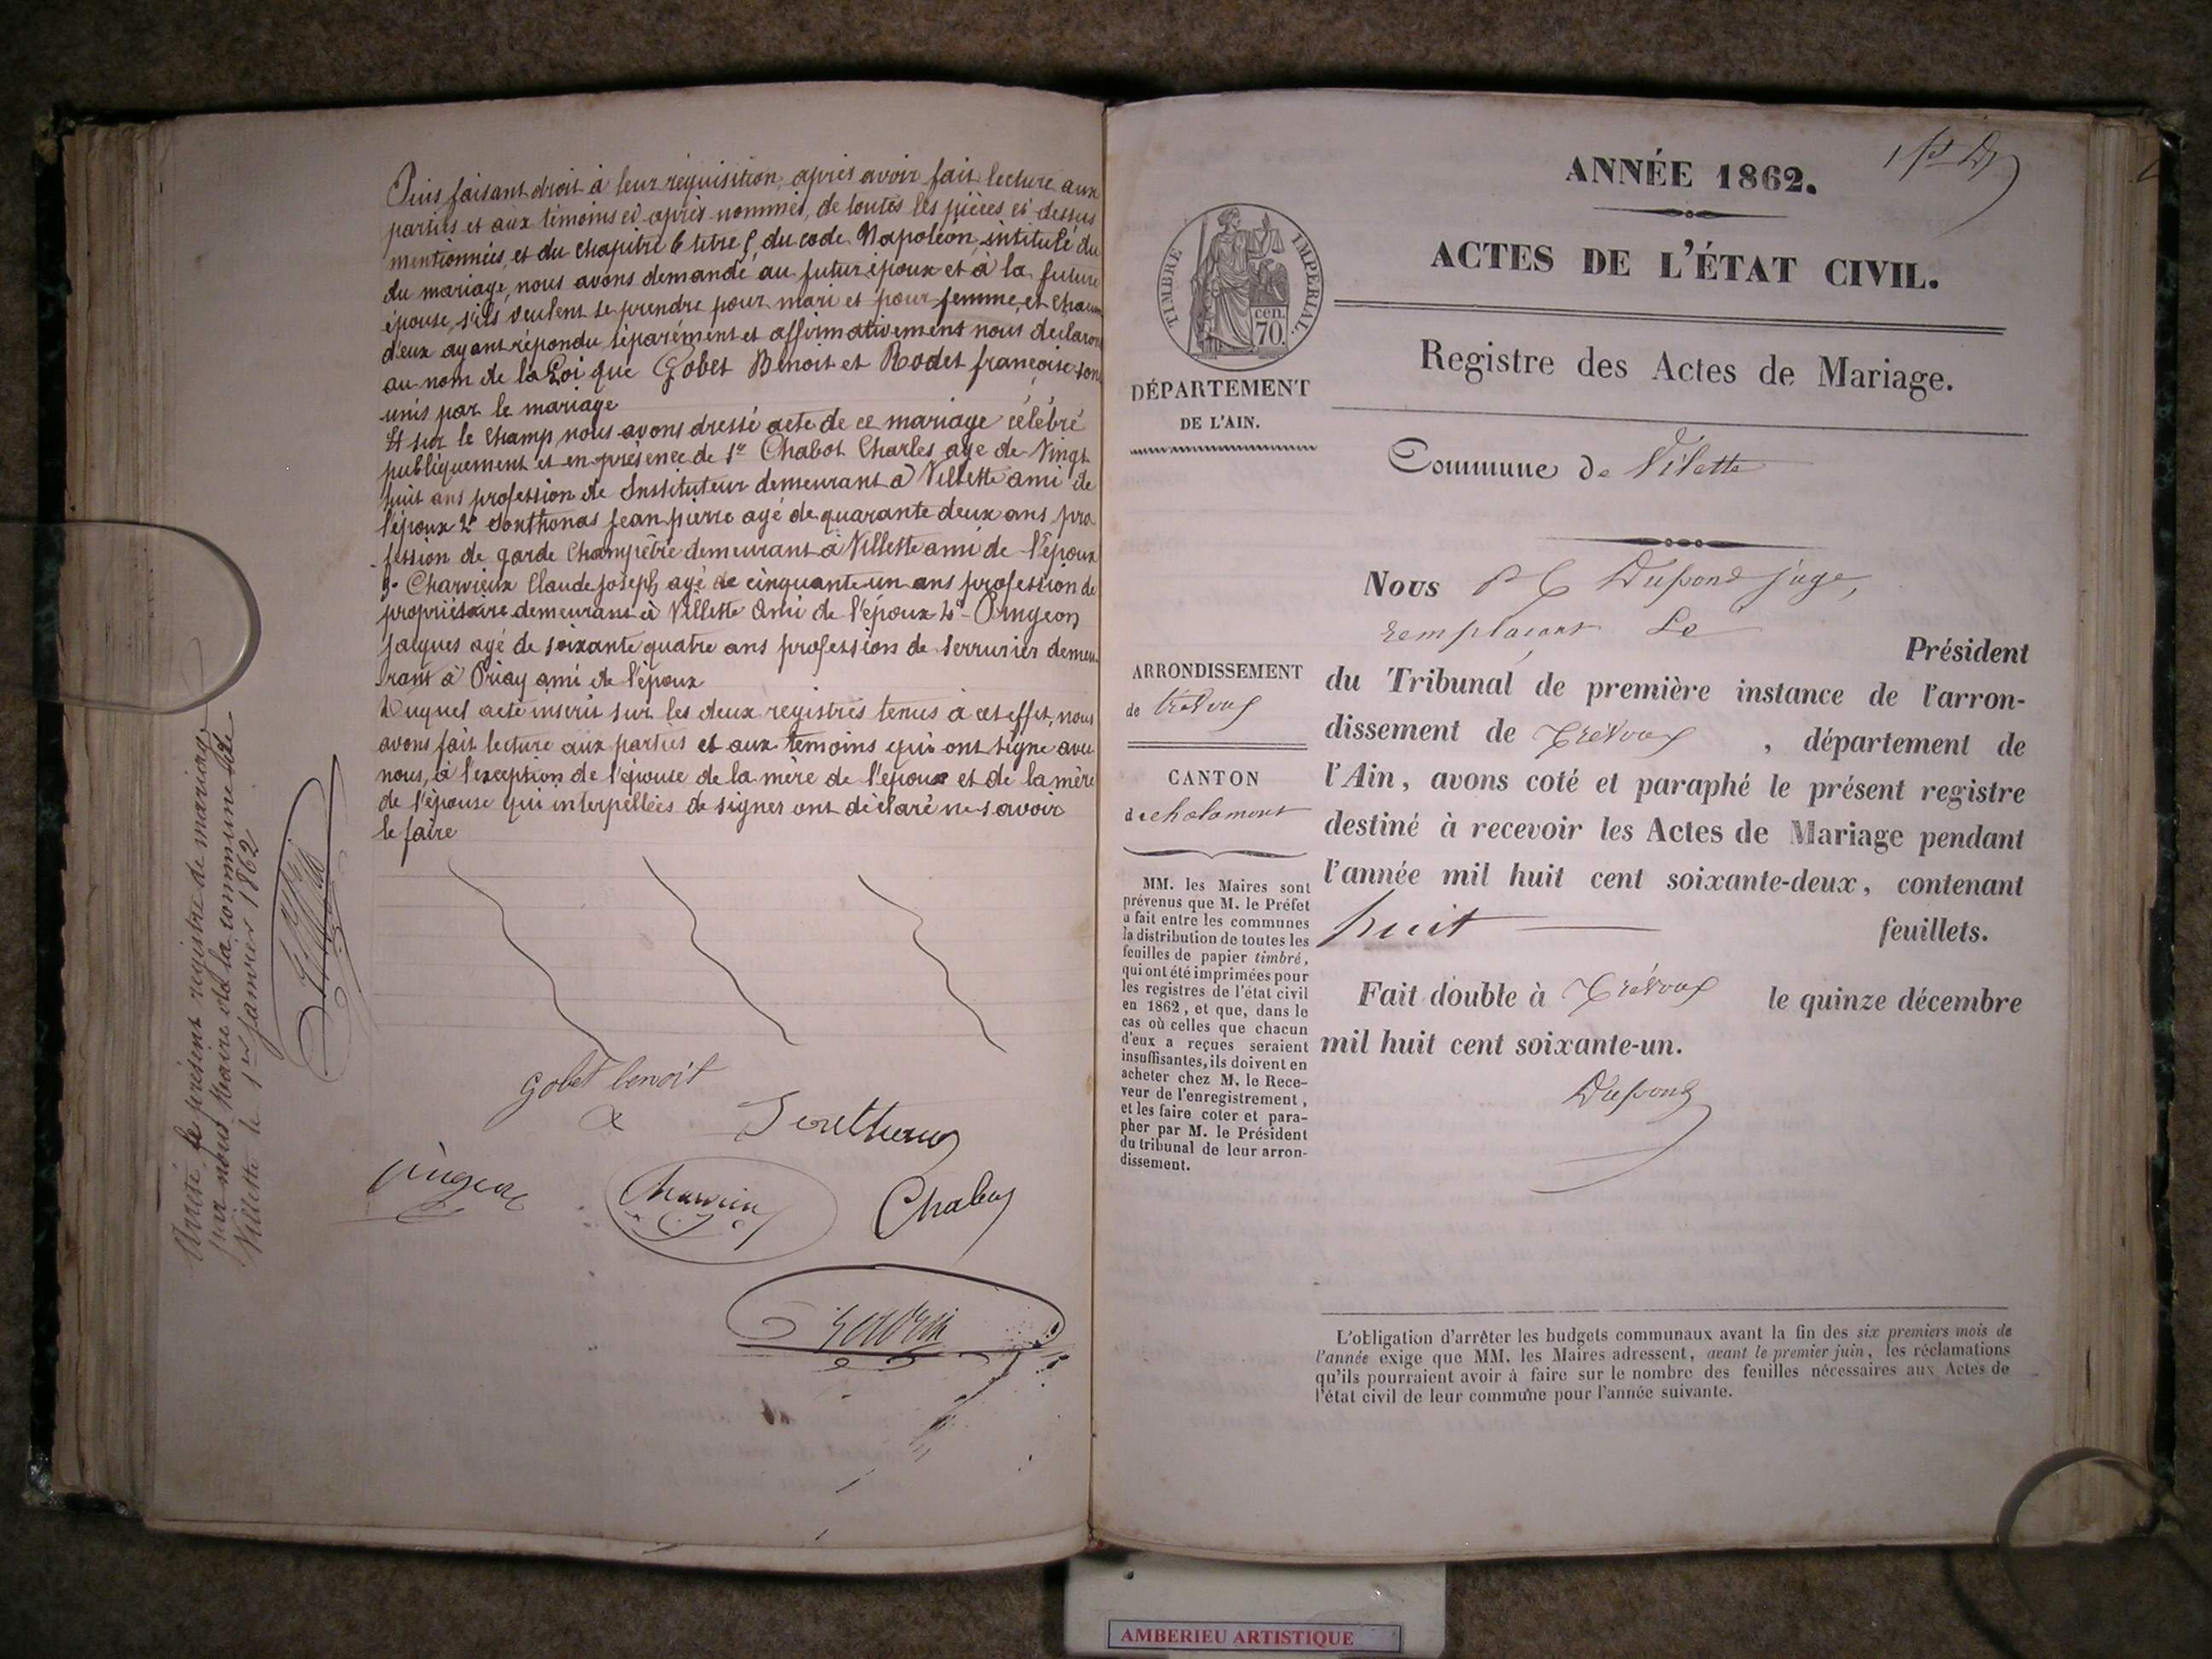 Puis faisant droit à leur réquisition, après avoir fait lecture aux
parties et aux témoins ci après nommés, de toutes les pièces ci dessus
mentionnées, et du chapitre 6 titre 5 du code Napoléon, intitulé du
du mariage, nous avons demandé au futur époux et à la future
épouse, s'ils veulent se prendre pour mari et pour femme, et chacun
d'eux ayant répondu séparément et affirmativement nous declarons
au nom de la Loi que Gobet Benoit et Rodet françoise sont
unis par le mariage
Et sur le champ, nous avons dressé acte de ce mariage célébré
publiquement et en présence de 1er Chabot Charles agé de vingt
huit ans profession de Instituteur demeurant à Villette ami de
l'époux 2e Sonthonas Jean pierre agé de quarante deux ans pro
fession de garde Champêtre demeurant à Villette ami de l'époux
3e Charvieux Claude Joseph agé de cinquante un ans profession de
propriétaire demeurant à Villette ami de l'époux 4e Pingeon
Jacques agé de soixante quatre ans profession de serrurier demeu
rant à Priay ami de l'époux
Duquel acte inscrit sur les deux registres tenus à cet effet, nous
avons fait lecture aux parties et aux témoins qui ont signé avec
nous, à l'exception de l'épouse de la mère de l'époux et de la mère
de l'épouse qui interpellées de signer ont déclaré ne savoir
le faire
gobet benoit
Pingeon
Charvieux
Arrêté le présent registre de mariage
par nous Maire de la commune de
Villette le 1er janvier 1862
ANNÉE 1862.
ACTES DE L'ÉTAT CIVIL.
TIMBRE IMPÉRIAL.
cen.
70.
Registre des Actes de Mariage.
DÉPARTEMENT
DE L'AIN.
Commune de Vilette
Nous Dupond juge,
remplacant Le
Président
du Tribunal de première instance de l'arron-
dissement de Trévoux, département de
l'Ain, avons coté et paraphé le présent registre
destiné à recevoir les Actes de Mariage pendant
l'année mil huit cent soixante-deux, contenant
huit feuillets.
Fait double à Trévoux le quinze décembre
mil huit cent soixante-un.
Dupond
ARRONDISSEMENT
de trévoux
CANTON
de chalamont
MM. les Maires sont
prévenus que M. le Préfet
a fait entre les communes
la distribution de toutes les
feuilles de papier timbré,
qui ont été imprimées pour
les registres de l'état civil
en 1862, et que, dans le
cas où celles que chacun
d'eux a reçues seraient
insuffisantes, ils doivent en
acheter chez M. le Rece-
veur de l'enregistrement,
et les faire coter et para-
pher par M. le Président
du tribunal de leur arron-
dissement.
L'obligation d'arrêter les budgets communaux avant la fin des six premiers mois de
l'année exige que MM. les Maires adressent, avant le premier juin, les réclamations
qu'ils pourraient avoir à faire sur le nombre des feuilles nécessaires aux Actes de
l'état civil de leur commune pour l'année suivante.
AMBERIEU ARTISTIQUE